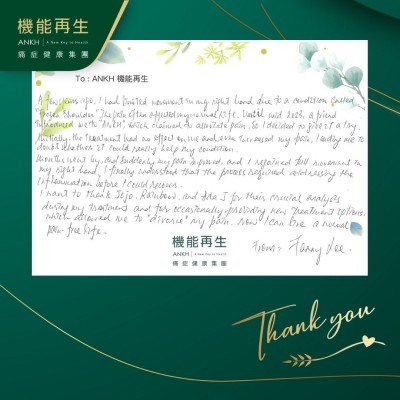 機能再生
ANKH | A New Key to Health
痛症健康集團
To : ANKH 機能再生
A few years ago, I had limited movement in my right hand due to a condition called
"frozen shoulder". The pain often affected my normal life. Until mid 2023, a friend
introduced me to "ANKH", which claimed to alleviate pain, so I decided to give it a try.
Initially, the treatment had no effect on me and even increased my pain, leading me to
doubt whether it could really help my condition.
Months went by, and suddenly my pain improved, and I regained full movement in
my right hand, I finally understood that the process required addressing the
inflammation before I could recover.
I want to thank Jojo, Rainbow, and Ada I for their crucial analysis
during my treatment and for occasionally providing new treatment options,
which allowed me to "divorce" my pain. Now I can live a normal
pain-free life.
機能再生
ANKH | A New Key to Health
痛症健康集團
From: Fanny Lee.
Thank you